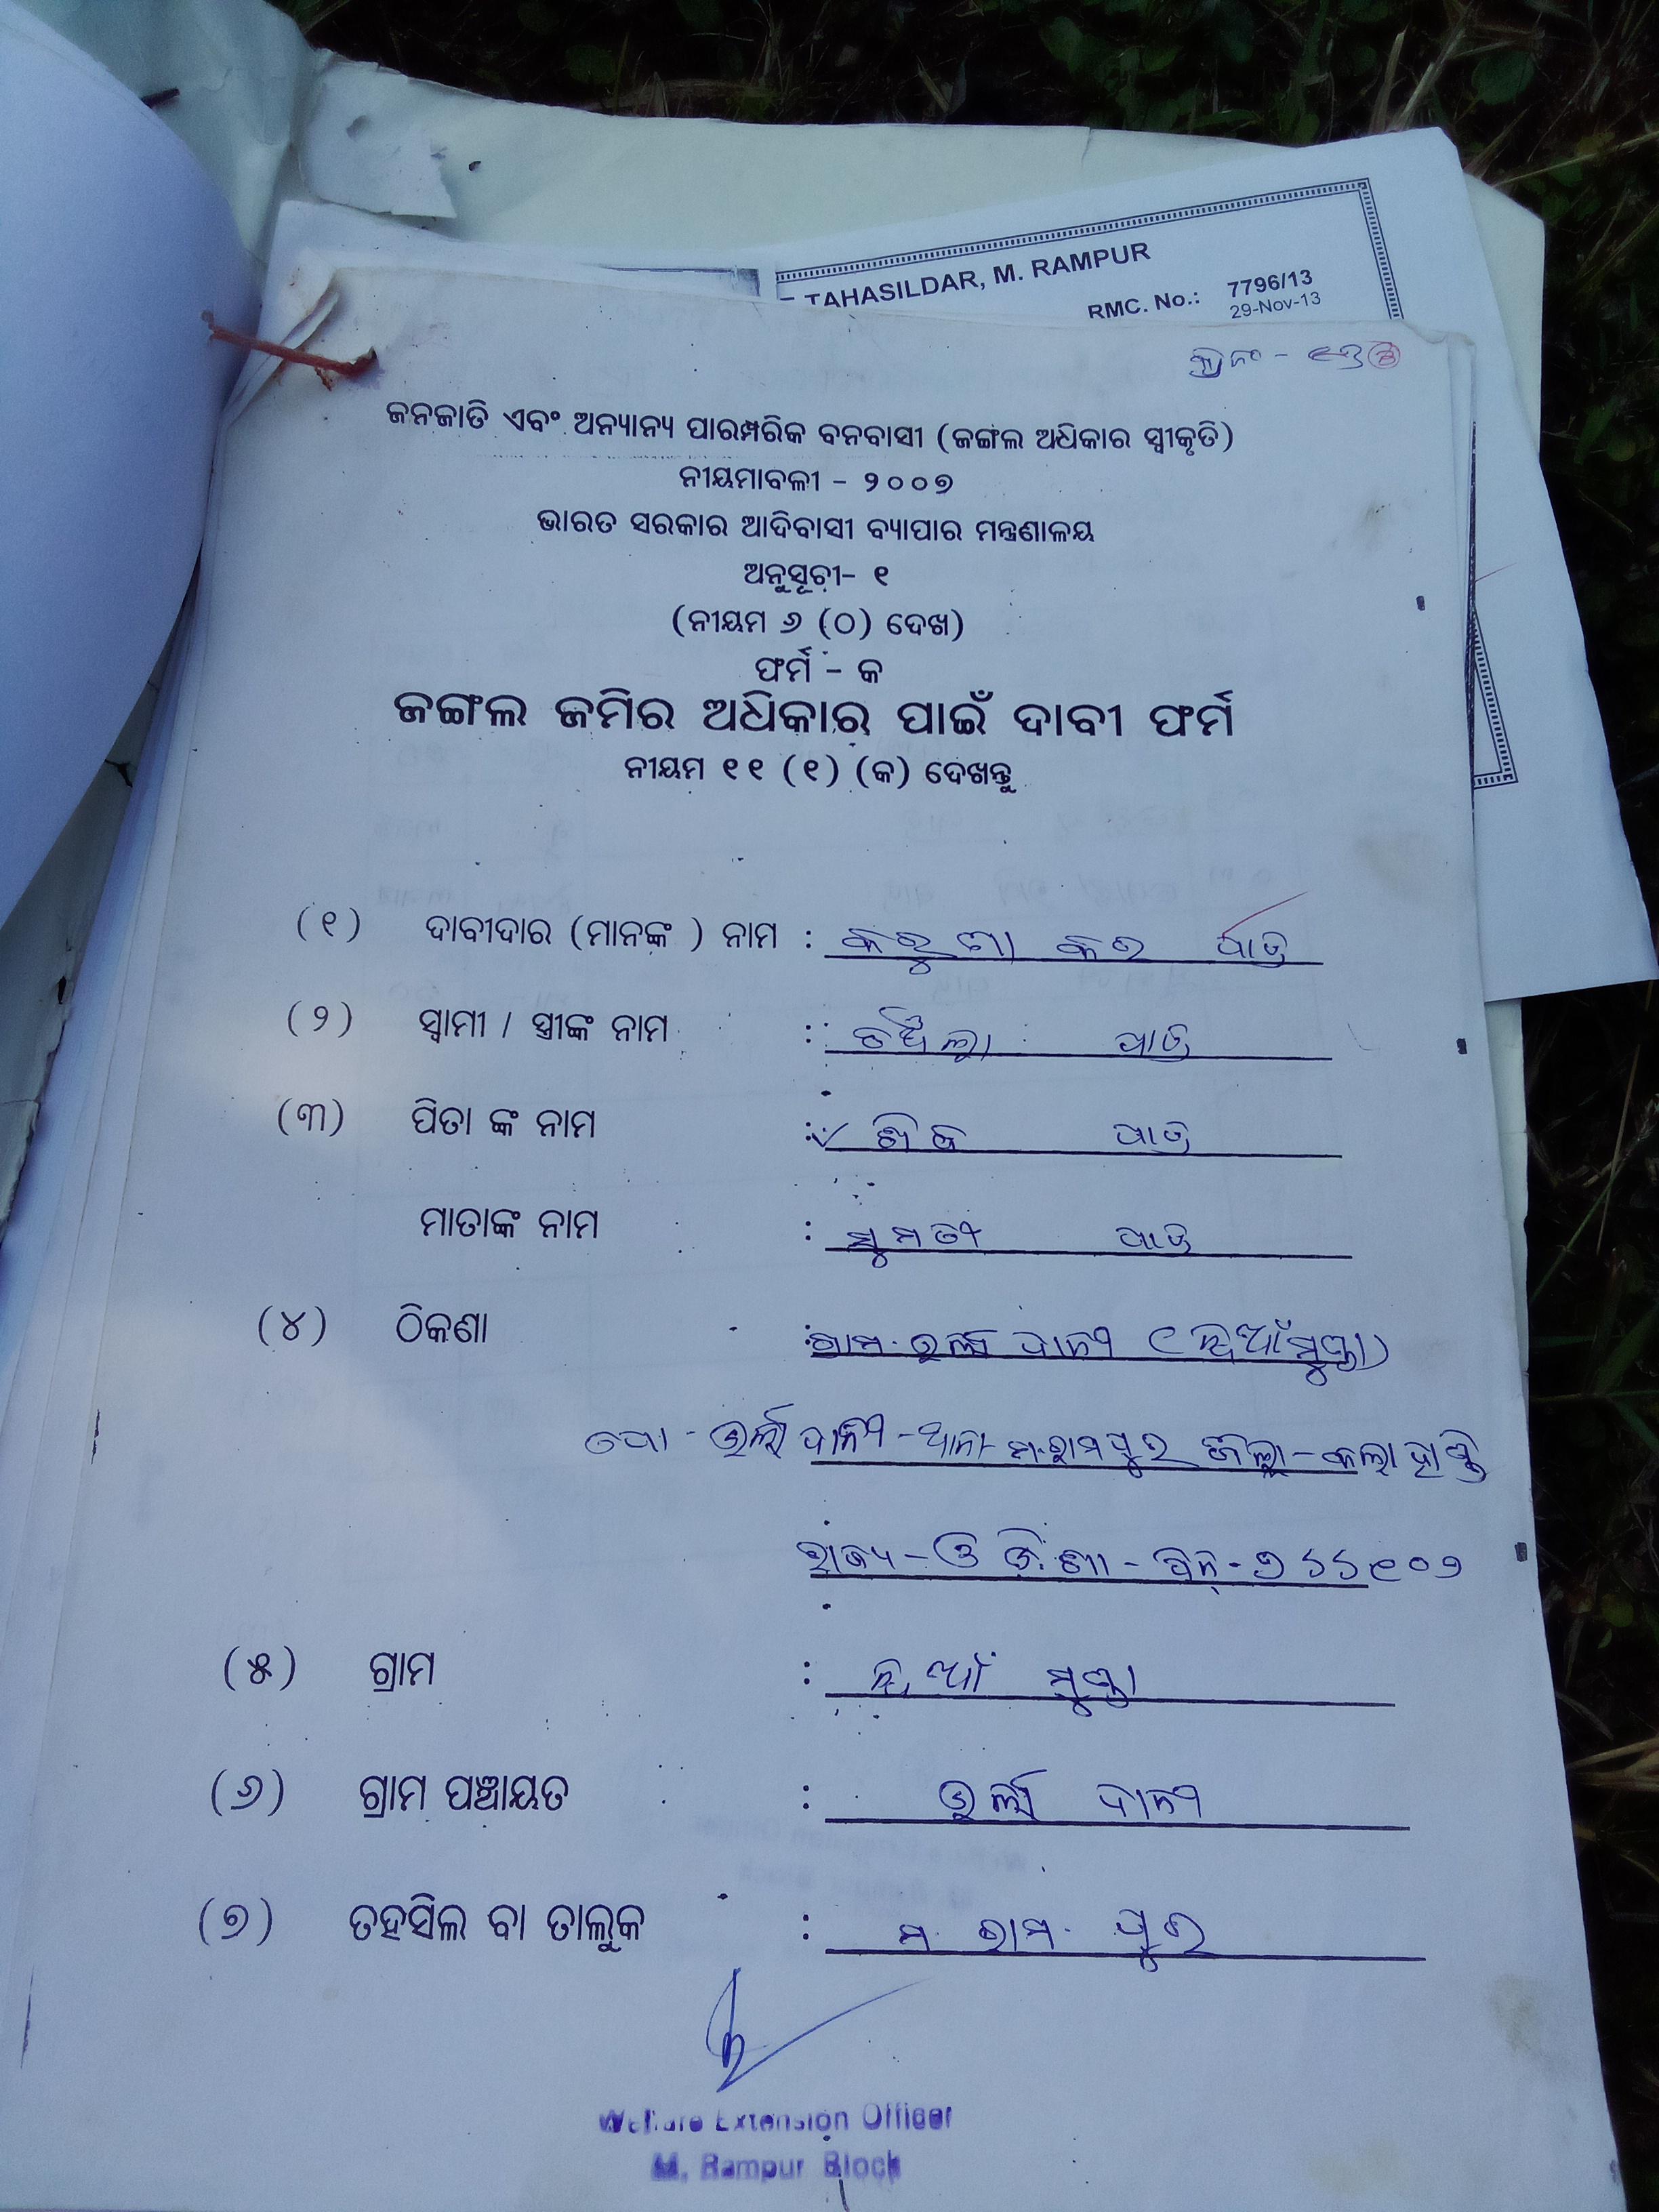 TAHASILDAR, M. RAMPUR
RMC. No.: 7796/13
29-Nov-13
ଜନଜାତି ଏବଂ ଅନ୍ୟାନ୍ୟ ପାରମ୍ପରିକ ବନବାସୀ (ଜଙ୍ଗଲ ଅଧିକାର ସ୍ୱୀକୃତି)
ନୀୟମାବଳୀ - ୨୦୦୭
ଭାରତ ସରକାର ଆଦିବାସୀ ବ୍ୟାପାର ମନ୍ତ୍ରଣାଳୟ
ଅନୁସୂଚୀ- ୧
(ନୀୟମ ୬ (ଠ) ଦେଖ)
ଫର୍ମ - କ
ଜଙ୍ଗଲ ଜମିର ଅଧିକାର ପାଇଁ ଦାବୀ ଫର୍ମ
ନୀୟମ ୧୧ (୧) (କ) ଦେଖନ୍ତୁ
(୧) ଦାବୀଦାର (ମାନଙ୍କ ) ନାମ : କରୁଣା କର ପାତ୍ର
(୨) ସ୍ୱାମୀ / ସ୍ତ୍ରୀଙ୍କ ନାମ : ପାତ୍ର
(୩) ପିତା ଙ୍କ ନାମ : ପାତ୍ର
ମାତାଙ୍କ ନାମ : ସୁମତୀ ପାତ୍ର
(୪) ଠିକଣା : ଗ୍ରାମ
ପୋ - ଥାନା ମ.ରାମପୁର ଜିଲ୍ଲା - କଳାହାଣ୍ଡି
ରାଜ୍ୟ - ଓଡିଶା - ପିନ୍ - ୭୬୬୧୦୨
(୫) ଗ୍ରାମ : ମୁଣ୍ଡା
(୬) ଗ୍ରାମ ପଞ୍ଚାୟତ :
(୭) ତହସିଲ ବା ତାଲୁକ : ମ. ରାମ. ପୁର
Welfare Extension Officer
M. Rampur Block